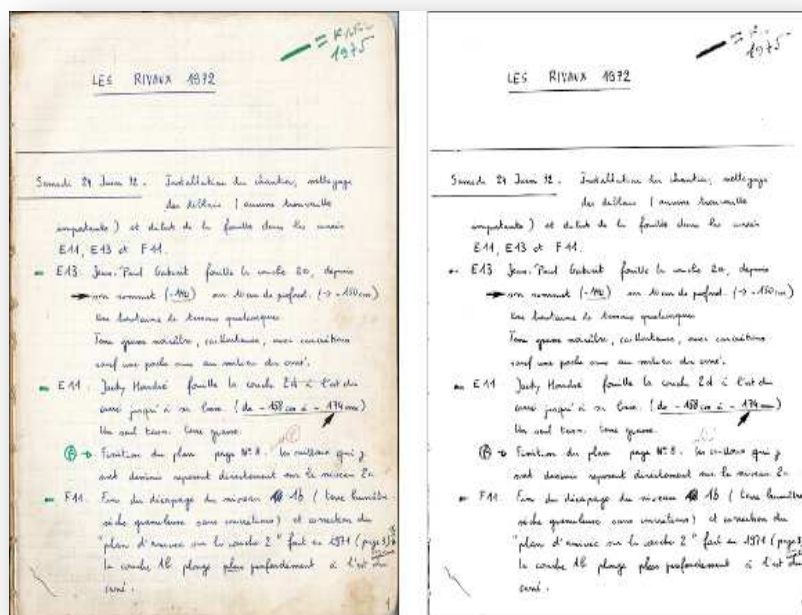 1975
LES RIVAUX 1972
Samedi 24 Juin 72. Installation du chantier, nettoyage
des déblais (aucune trouvaille
importante) et début de la fouille dans les carrés
E11, E13 et F11.
E13 Jean-Paul fouille la couche 2a, depuis
son sommet (-140) sur 10 cm de profond. (→ -150 cm)
Une trentaine de tessons quelconques
Terre grasse noirâtre, caillouteuse, avec concrétions
sauf une poche au milieu du carré.
E11. Jacky fouille la couche 2d à l'est du
carré jusqu'à sa base. (de -158 cm à -174 cm)
Un seul tesson. Terre grasse.
Finition du plan page N° 8. les cailloux qui y
sont dessinés reposent directement sur le niveau 2
F11. Fin du décapage du niveau 1b (terre humifère
sèche grumeleuse sans concrétions) et correction du
"plan d'arrivée sur la couche 2" fait en 1971 (page 3)
la couche 1b plonge plus profondément à l'est du
carré.
1975
LES RIVAUX 1972
Samedi 24 Juin 72. Installation du chantier, nettoyage
des déblais (aucune trouvaille
importante) et début de la fouille dans les carrés
E11, E13 et F11.
E13 Jean-Paul fouille la couche 2a, depuis
son sommet (-140) sur 10 cm de profond. (→ -150 cm)
Une trentaine de tessons quelconques
Terre grasse noirâtre, caillouteuse, avec concrétions
sauf une poche au milieu du carré.
E11 Jacky fouille la couche 2d à l'est du
carré jusqu'à sa base. (de -158 cm à -174 cm)
Un seul tesson. Terre grasse.
Finition du plan page N° 8. les cailloux qui y
sont dessinés reposent directement sur le niveau 2
F11. Fin du décapage du niveau 1b (terre humifère
sèche grumeleuse sans concrétions) et correction du
"plan d'arrivée sur la couche 2" fait en 1971 (page 3)
la couche 1b plonge plus profondément à l'est du
carré.